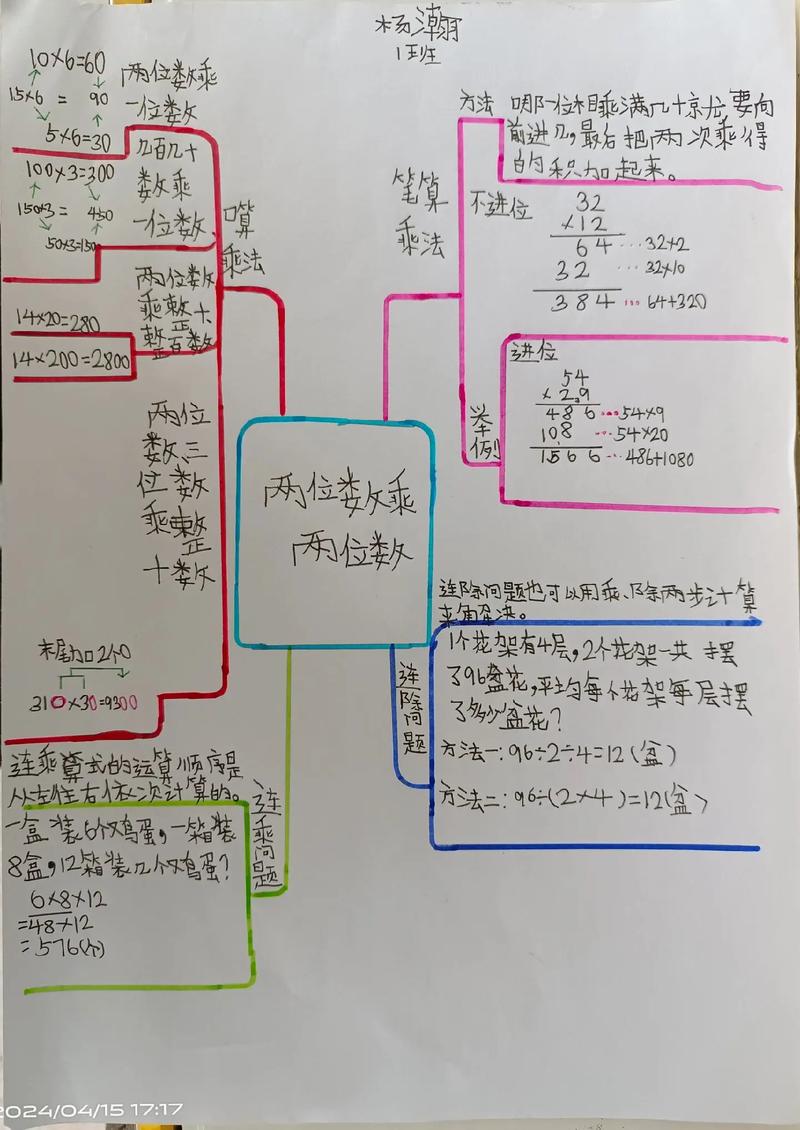 杨瀚
1班
10×6=60
15×6= 90
5×6=30
两位数乘
一位数
100×3=300
150×3= 450
50×3=150
几百几十
数乘
一位数
口算
乘法
两位数
乘整十
整百数
14×20=280
14×200=2800
两位
数、三
位数
乘整
十数
末尾加2个0
310×30=9300
笔算
乘法
方法
哪一位相乘满几十就要向
前进几,最后把两次乘得
的积加起来。
不进位
32
×12
64…32×2
32 …32×10
384…64+320
举
例
进位
54
×29
486…54×9
108 …54×20
1566…486+1080
两位数乘
两位数
连除问题也可以用乘、除两步计算
来解决。
连除问题
1个花架有4层,2个花架一共摆
了96盆花,平均每个花架每层摆
了多少盆花?
方法一:96÷2÷4=12(盆)
方法二:96÷(2×4)=12(盆)
连乘算式的运算顺序是
从左往右依次计算的。
连乘问题
一盒装6个鸡蛋,一箱装
8盒,12箱装几个鸡蛋?
6×8×12
=48×12
=576(个)
2024/04/15 17:17